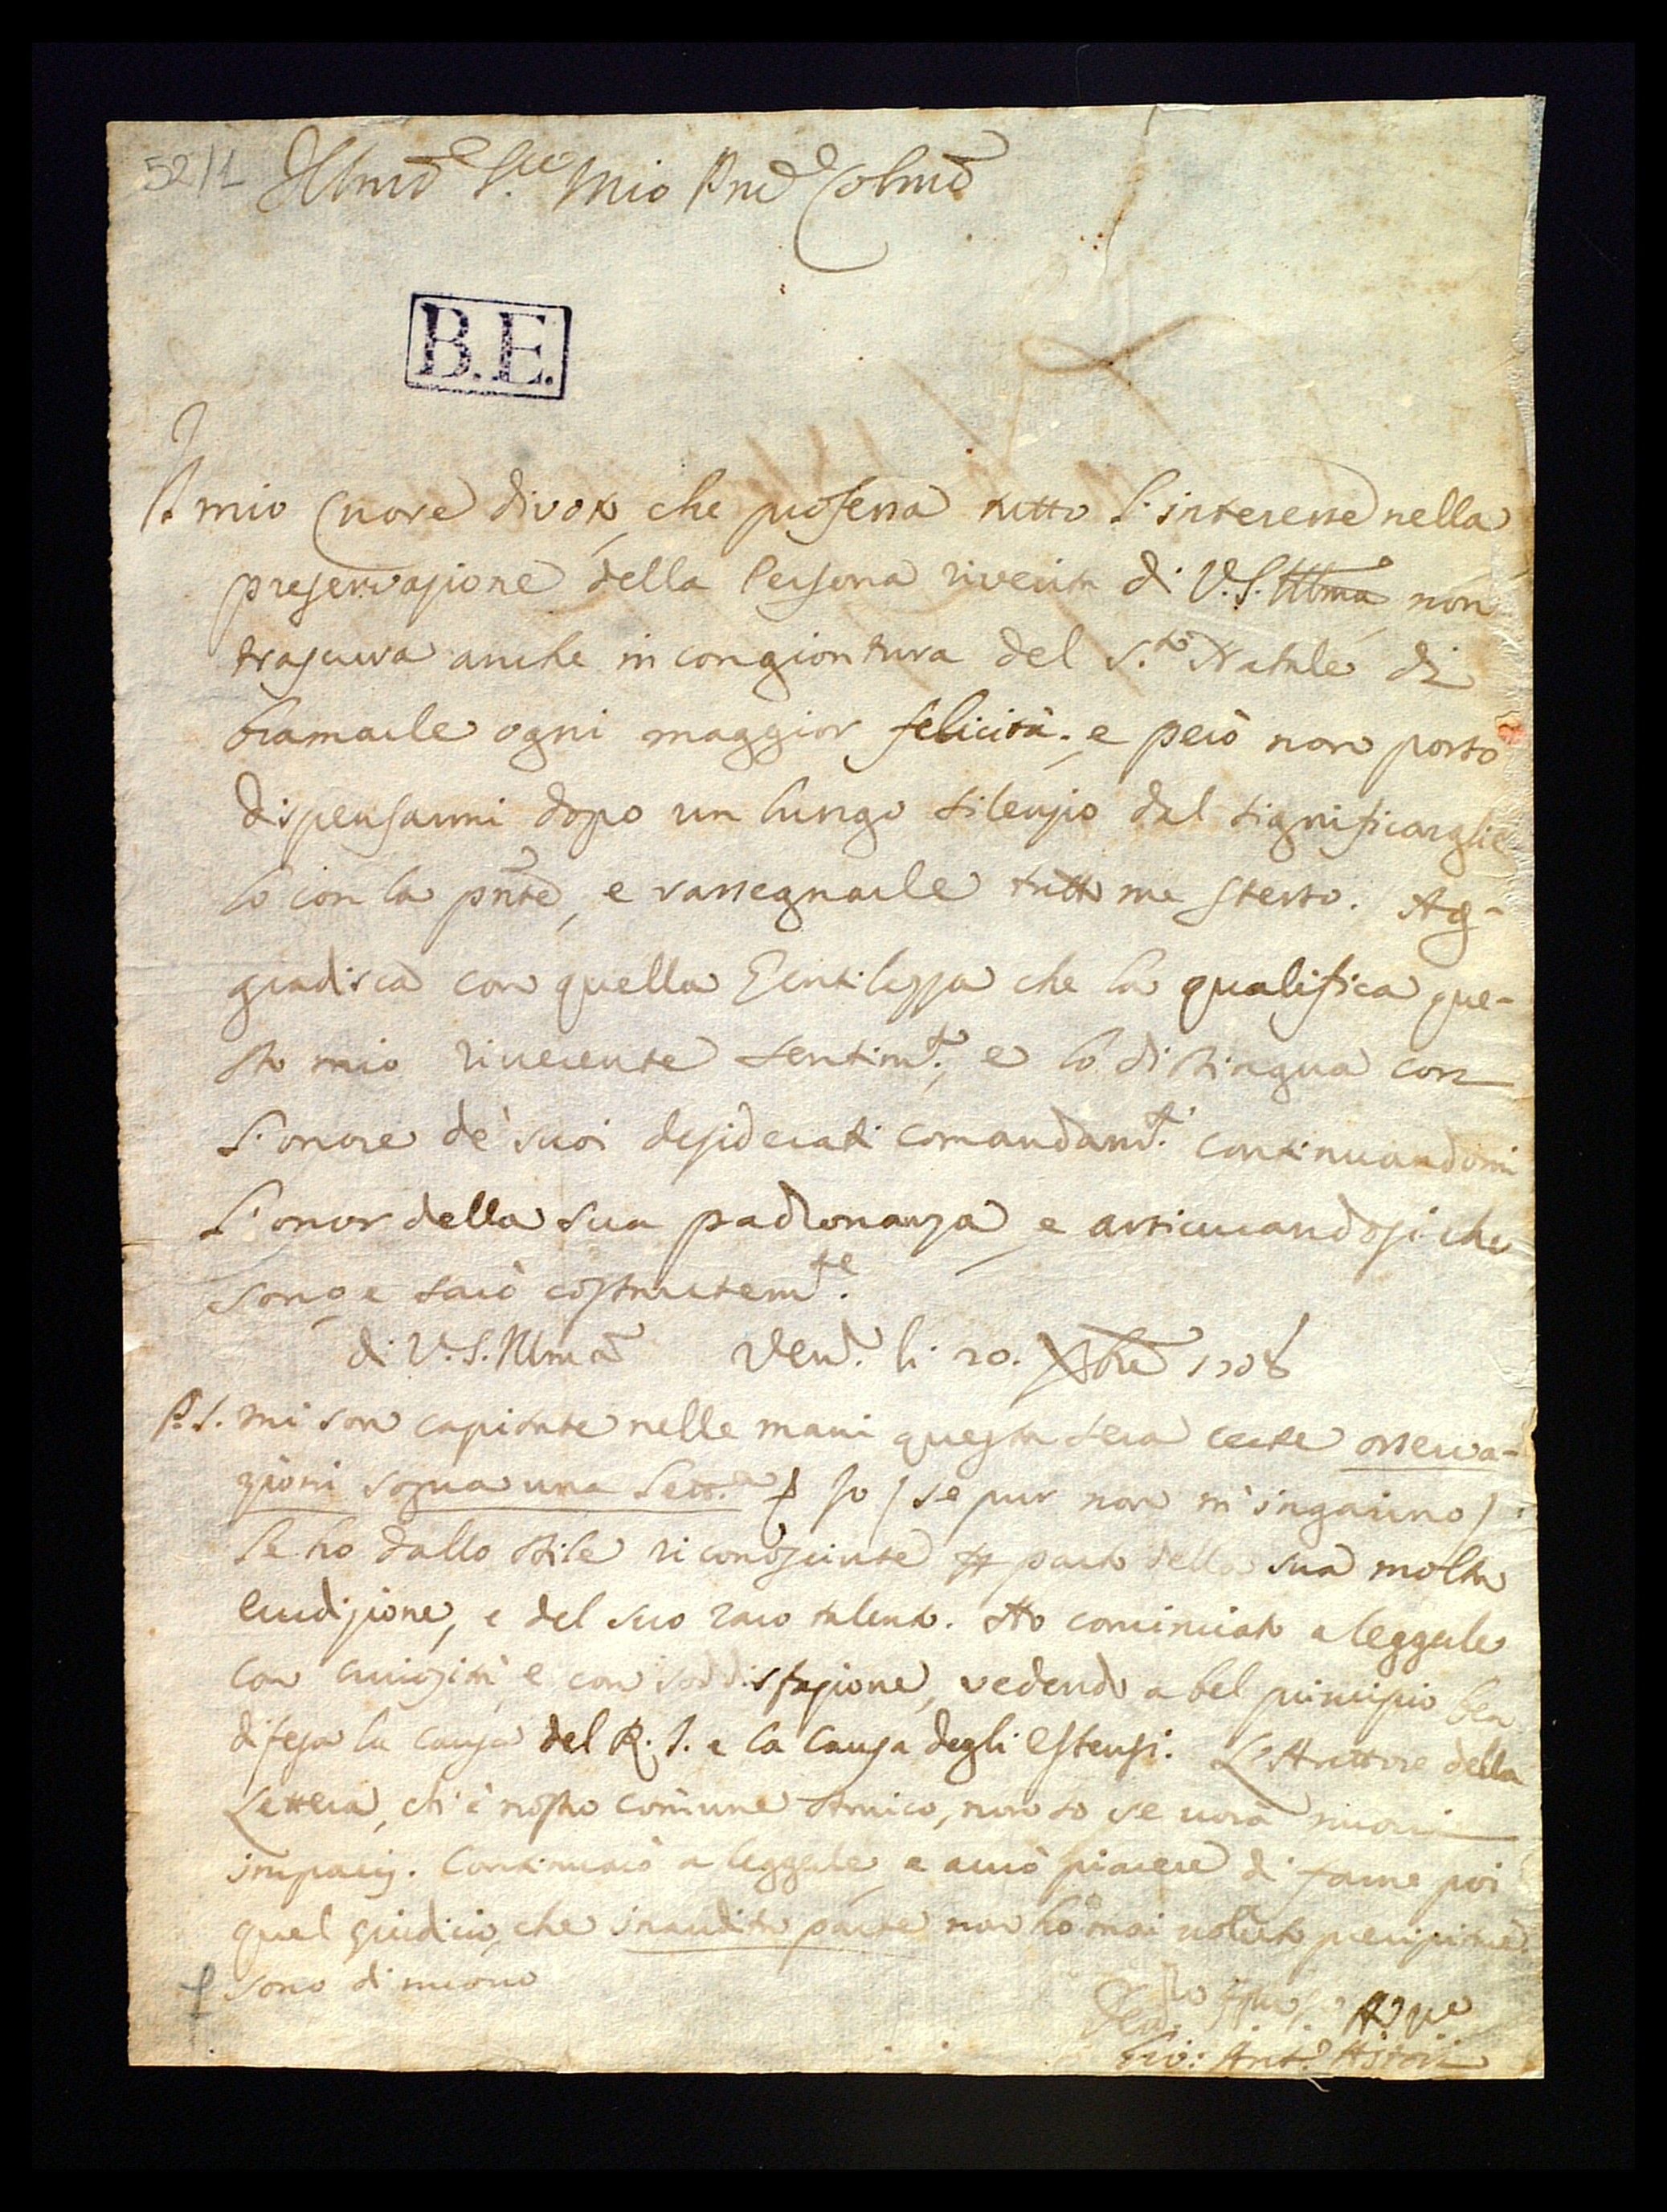 52/1 Illmo Sre Mio Pne Colmo
B.E.
Il mio Cuore divoto, che professa tutto l'interesse nella
preservazione della Persona riverita di V.S. Illma, non
trascura anche in congiontura del S.to Natale di
bramarle ogni maggior felicità; e però non posso
dispensarmi dopo un lungo silenzio dal significarglie
lo con la pnte, e rassegnarle tutto me stesso. Ag-
gradisca con quella Gentilezza che la qualifica que-
sto mio riverente sentim.to, e lo distingua con
l'onore de' suoi desiderati comandam.ti continuandomi
l'onor della sua padronanza, e assicurandosi che
sono, e sarò costantem.te
di V.S. Illma Ven.a li 20. Xbre 1708
P.S. mi son capitate nelle mani questa sera certe osserva-
zioni sopra una Lett.a Io (se pur non m'inganno)
le ho dallo stile riconosciute parto della sua molta
erudizione, e del suo raro talento. Ho cominciato a leggerle
con curiosità, e con soddisfazione, vedendo a bel principio ben
difesa la causa del R. I. e la causa degli Estensi. L'Auttore della
Lettera, ch'è nostro comune Amico, non so se vorà nuovi
impacij. Continuarò a leggerle, e avrò piacere di farne poi
quel giudicio, che inaudita parte non ho mai voluto precipitare.
sono di nuovo
Gio: Ant.o Astori